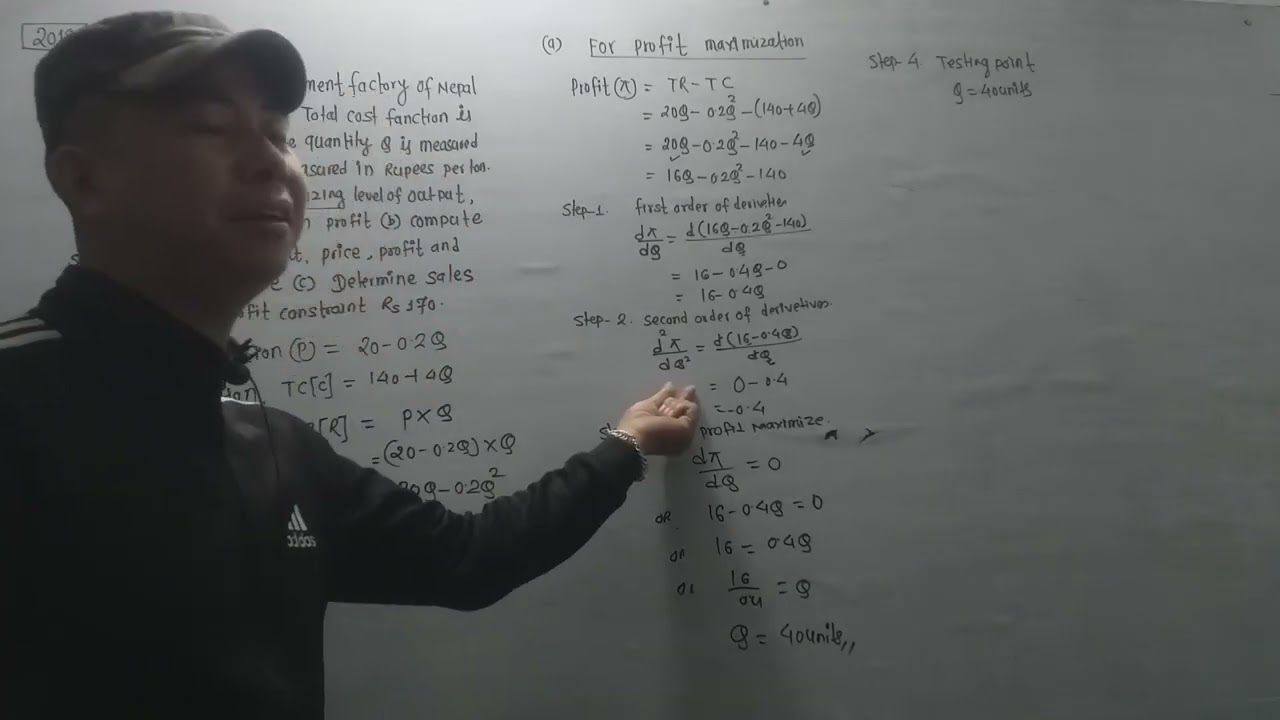 2019
ment factory of Nepal
Total cost fanction is
e quantity Q is measured
sured in Rupees per ton.
izing level of output,
profit (b) compute
t, price, profit and
(c) Determine sales
fit constraint Rs 170.
on (P) = 20-0.2Q
TC[C] = 140+4Q
[R] = P×Q
=(20-0.2Q)×Q
20Q-0.2Q²
(a) For profit maximization
Profit (π) = TR-TC
= 20Q-0.2Q²-(140+4Q)
= 20Q-0.2Q²-140-4Q
= 16Q-0.2Q²-140
Step-1. first order of derivetives
dπ/dQ = d(16Q-0.2Q²-140)/dQ
= 16-0.4Q-0
= 16-0.4Q
Step-2. second order of derivetives.
d²π/dQ² = d(16-0.4Q)/dQ
= 0-0.4
=-0.4
profit maximize.
dπ/dQ = 0
OR 16-0.4Q=0
or 16 = 0.4Q
or 16/0.4 = Q
Q = 40units,,
Step-4. Testing point
Q=40units
adidas